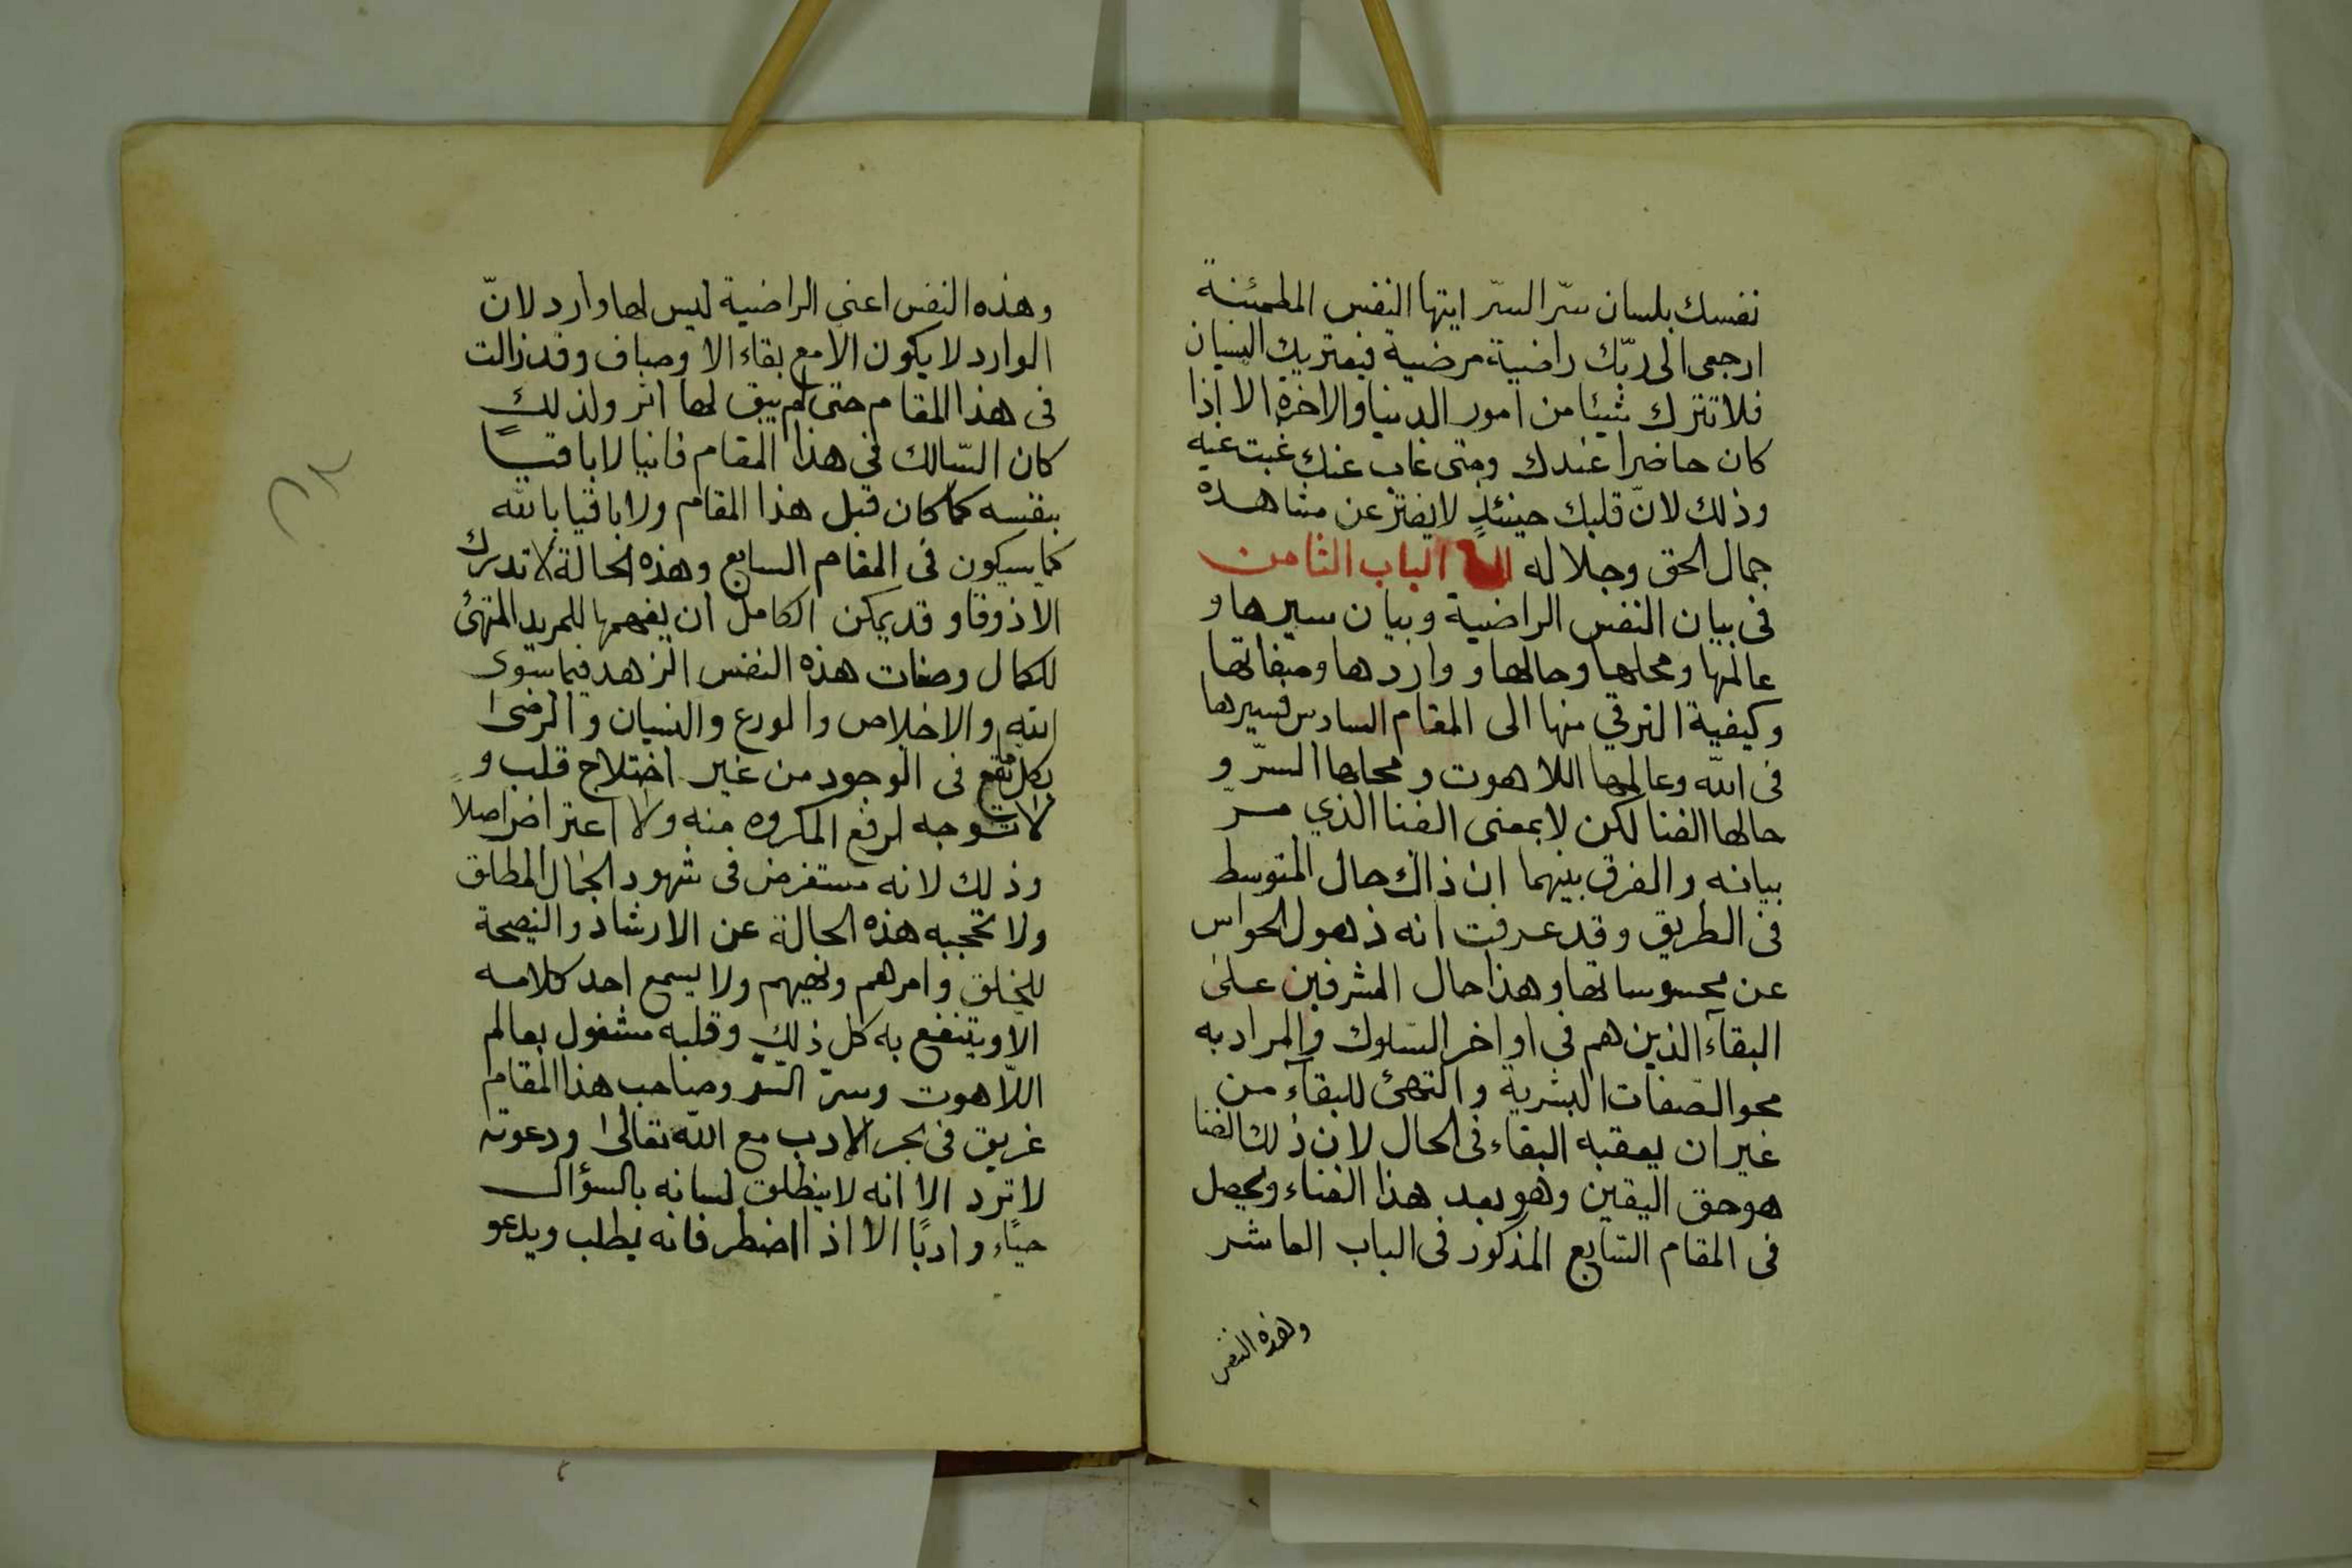 نفسك بلسان سرّ السرّ ايتها النفس المطمئنة
ارجعى الى ربّك راضية مرضية فيعتريك النسيان
فلا تترك شيئا من امور الدنيا والاخرة الا اذا
كان حاضرا عندك ومتى غاب عنك غبت عنه
وذلك لانّ قلبك حينئذٍ لا يفتر عن مشاهدة
جمال الحق وجلاله الباب الثامن
فى بيان النفس الراضية وبيان سيرها و
عالمها ومحلها وحالها و واردها وصفاتها
وكيفية الترقي منها الى المقام السادس فسيرها
فى الله وعالمها اللاهوت ومحلها السرّ و
حالها الفنا لكن لا بمعنى الفنا الذي مرّ
بيانه والفرق بينهما ان ذاك حال المتوسط
فى الطريق وقد عرفت انه ذهول الحواس
عن محسوساتها وهذا حال المشرفين على
البقآء الذين هم في اواخر السّلوك والمراد به
محو الصّفات البشرية والتهئ للبقآء من
غير ان يعقبه البقاء فى الحال لان ذلك الفنا
هو حق اليقين وهو بعد هذا الفناء ويحصل
فى المقام السّابع المذكور فى الباب العاشر
وهذه النفس
وهذه النفس اعنى الراضية ليس لها وارد لانّ
الوارد لا يكون الا مع بقاء الاوصاف وقد زالت
فى هذا المقام حتى لم يبق لها اثر ولذلك
كان السّالك في هذا المقام فانيا لا باقيًا
بنفسه كما كان قبل هذا المقام ولا باقيا بالله
كما سيكون فى المقام السابع وهذه الحالة لا تدرك
الا ذوقا وقد يمكن الكامل ان يفهمها للمريد المتهئ
للكمال وصفات هذه النفس الزهد فيما سوى
الله والاخلاص والورع والنسيان والرضى
بكل ما يقع فى الوجود من غير اختلاج قلب و
لا توجه لرفع المكروه منه ولا اعتراض اصلا
وذلك لانه مستغرض فى شهود الجمال المطلق
ولا تحجبه هذه الحالة عن الارشاد والنصيحة
للخلق وامرهم ونهيهم ولا يسمع احد كلامه
الا وينتفع به كل ذلك وقلبه مشغول بعالم
اللّاهوت وسرّ السّر وصاحب هذا المقام
غريق فى بحر الادب مع الله تعالى ودعوته
لا تردّ الا انه لا ينطلق لسانه بالسؤال
حياء وادبًا الا اذا اضطر فانه يطلب ويدعو